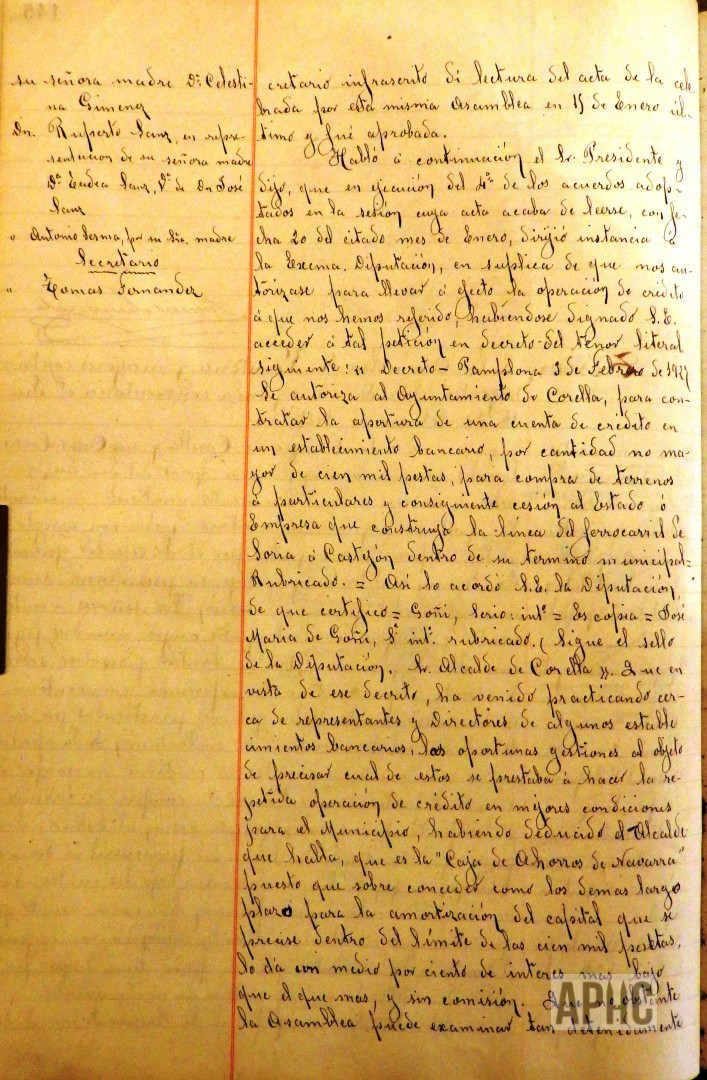 su señora madre Dª Celesti-
na Gimenez
Dn. Ruperto Sanz, en repre-
sentacion de su señora madre
Dª Eudea Sanz, Vª de Dn José
Sanz
" Antonio Sesma, por su Sra. madre
Secretario
" Tomas Fernandez
cretario infrascrito di lectura del acta de la cele
brada por esta misma Asamblea en 15 de Enero úl-
timo y fué aprobada.
Habló á continuación el Sr. Presidente y
dijo, que en ejecución del 4º de los acuerdos adop-
tados en la sesión cuya acta acaba de leerse, con fe-
cha 20 del citado mes de Enero, dirigió instancia á
la Excma. Diputación, en suplica de que nos au-
torizase para llevar á efecto la operación de crédito
á que nos hemos referido, habiéndose dignado S.E.
acceder á tal petición en decreto del tenor literal
siguiente: "Decreto - Pamplona 3 de Febrero de 1927
Se autoriza al Ayuntamiento de Corella, para con-
tratar la apertura de una cuenta de crédito en
un establecimiento bancario, por cantidad no ma-
yor de cien mil pestas, para compra de terrenos
á particulares y consiguiente cesión al Estado ó
Empresa que construya la línea del ferrocarril de
Soria á Castejón dentro de su termino municipal-
Rubricado. = Así lo acordó S.E. la Diputación,
de que certifico = Goñi, Serio: intº = Es copia = José
Maria de Goñi, Sº intº. rubricado. (Sigue el sello
de la Diputación. Sr. Alcalde de Corella". Que en
vista de ese decrito, ha venido practicando cer-
ca de representantes y Directores de algunos estable
cimientos bancarios, las oportunas gestiones al objeto
de precisar cual de estos se prestaba á hacer la re-
petida operación de crédito en mejores condiciones
para el Municipio, habiendo deducido el Alcalde
que habla, que es la "Caja de Ahorros de Navarra"
puesto que sobre conceder como los demas largo
plazo para la amortización del capital que se
precise dentro del límite de las cien mil pesetas,
lo dá con medio por ciento de interes mas bajo
que el que mas, y sin comisión. Que no obstante
la Asamblea puede examinar tan detenidamente
APHC